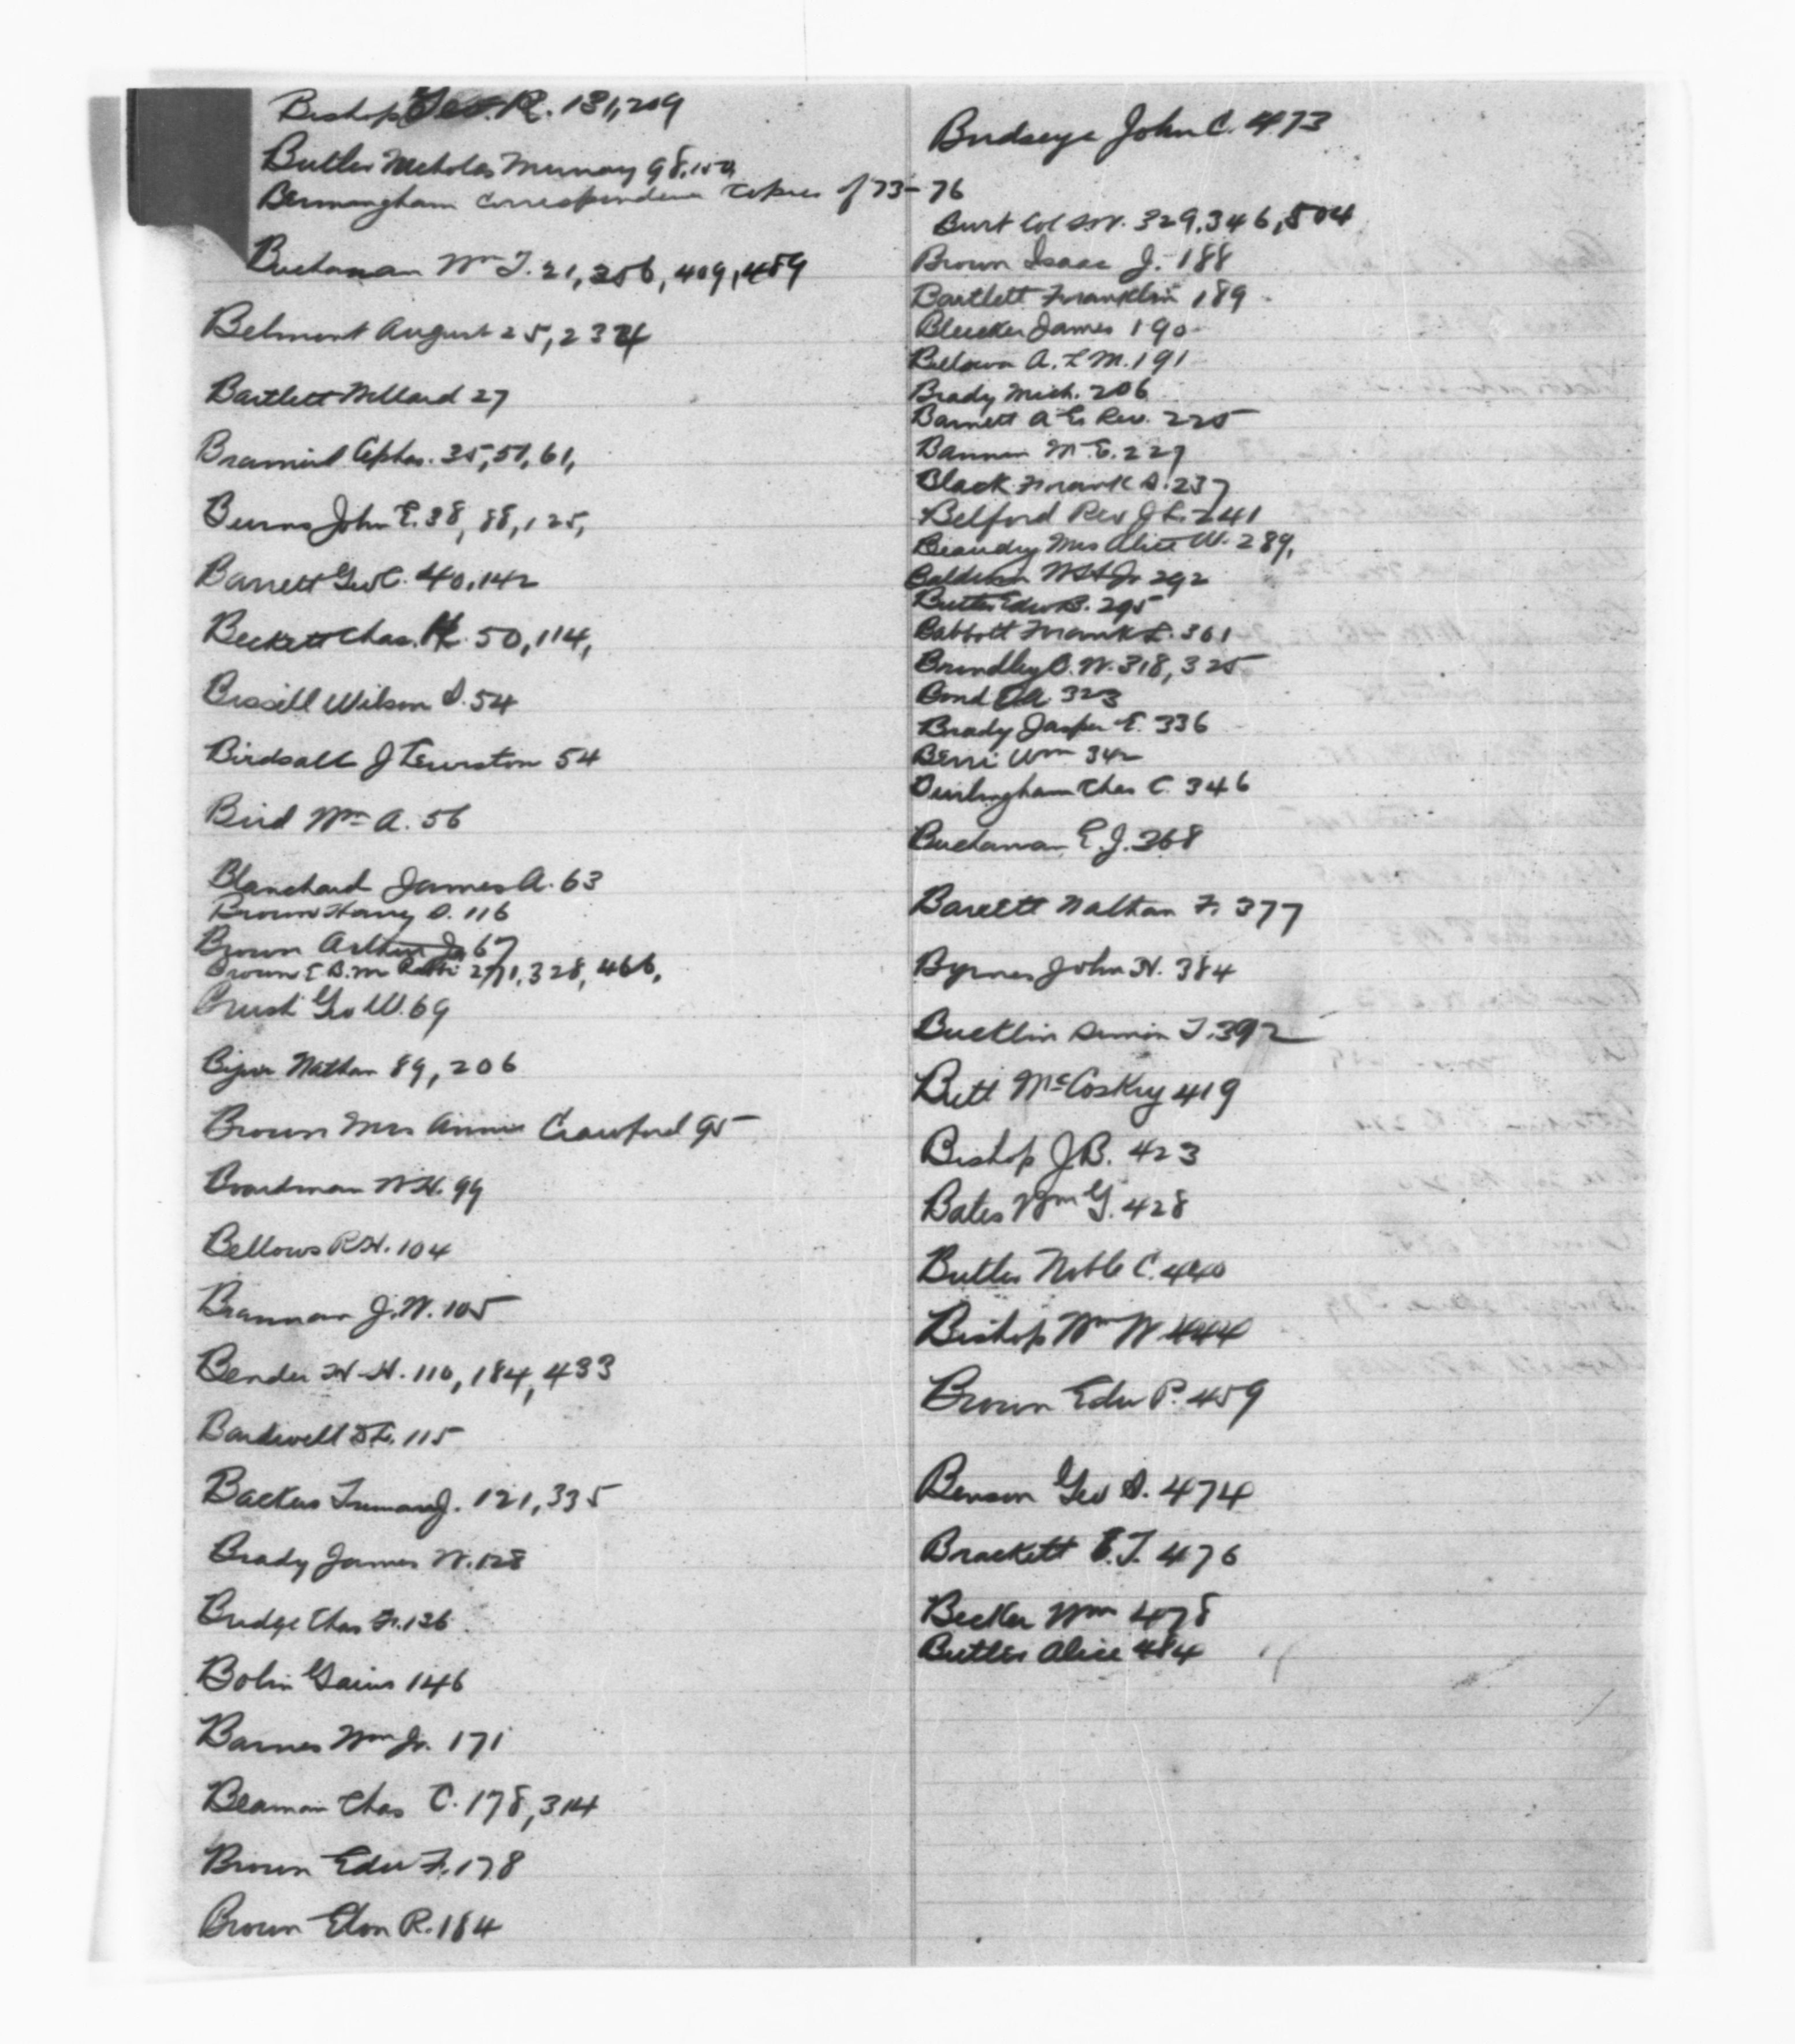 Bishop Geo. R. 131,209
Butler Nicholas Murray 98,150
Bermingham Correspondence Copies of 73-76
Buchanan Wm I. 21, 256, 409, 489
Belmont August 25, 234
Bartlett Willard 27
35, 51, 61,
Burns John E. 38, 88, 125,
Barrett Geo C. 40,142
Beckett Chas. H. 50, 114,
Bissell Wilson S. 54
Birdsall J 54
Bird Wm A. 56
Blanchard James A. 63
Brown Harry S. 116
Brown Arthur Jr 67
Brown E B.M. Rabbi 271, 328, 466,
Brush Geo W. 69
Bijur Nathan 89, 206
Brown Mrs Annie Crawford 95
Boardman W.H. 99
Bellows R.H. 104
Brannan J.W. 105
Bender H.H. 110, 184, 433
Bardwell 115
Backus Truman J. 121, 335
Brady James W. 128
Bridge Chas F. 136
Bolin Gaius 146
Barnes Wm Jr. 171
Beaman Chas C. 178, 314
Brown Edw F. 178
Brown Elon R. 184
Birdseye John C. 473
Burt Col S.W. 329, 346, 504
Brown Isaac J. 188
Bartlett Franklin 189
Bleecker James 190
A. M. 191
Brady Mich. 206
Barnett A E Rev. 225
Bannan M E. 227
Black Frank S. 237
Belford Rev J L. 241
Beaudry Mrs Alice W. 289,
Baldwin W H Jr. 292
Butler Edw B. 295
Babbott Frank L. 301
Brindley C. W. 318, 325
Bond 323
Brady Jasper E. 336
Berri Wm 342
Burlingham Chas C. 346
Buchanan E. J. 368
Barrett Nathan F. 377
Byrnes John H. 384
Bucklin 392
Butt McCoskry 419
Bishop J B. 423
Bates Wm G. 428
Butler Noble C. 440
Bishop Wm W 444
Brown Edw P. 459
Benson Geo S. 474
Brackett E.T. 476
Becker Wm 478
Butler Alice 484